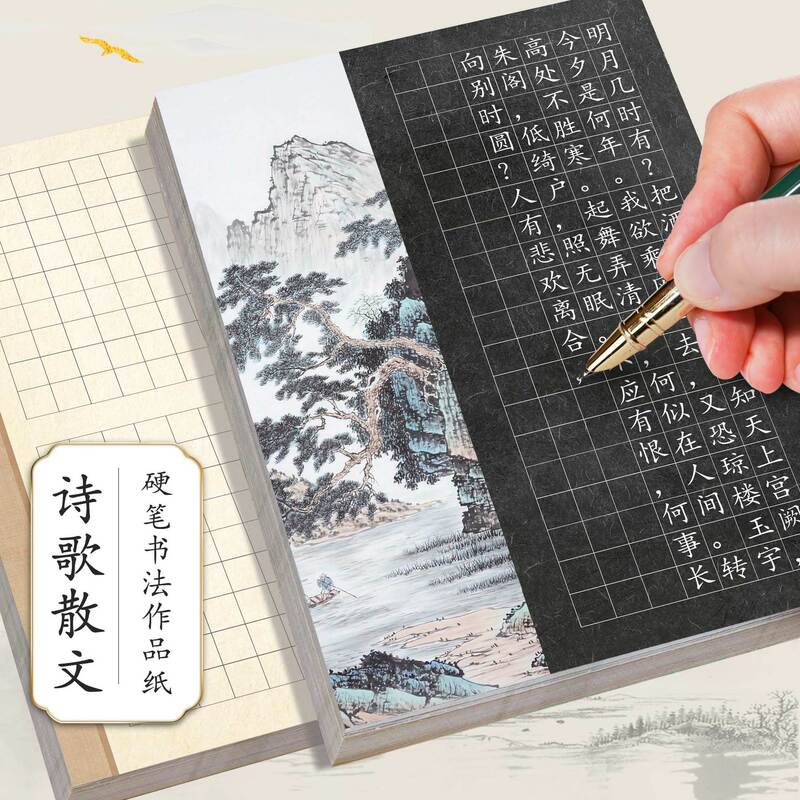 明月几时有？把酒知天上宫阙，
今夕是何年。我欲乘去，又恐琼楼玉宇
高处不胜寒。起舞弄清何似在人间。转
朱阁，低绮户，照无眠。不应有恨，何事长
向别时圆？人有悲欢离合，
硬笔书法作品纸
诗歌散文